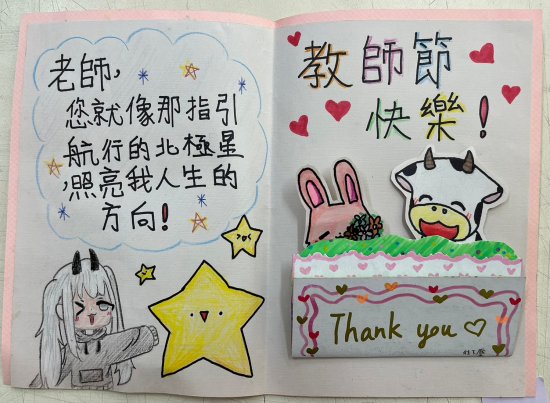 老師,
您就像那指引
航行的北極星
,照亮我人生的
方向!
教師節
快樂!
Thank you